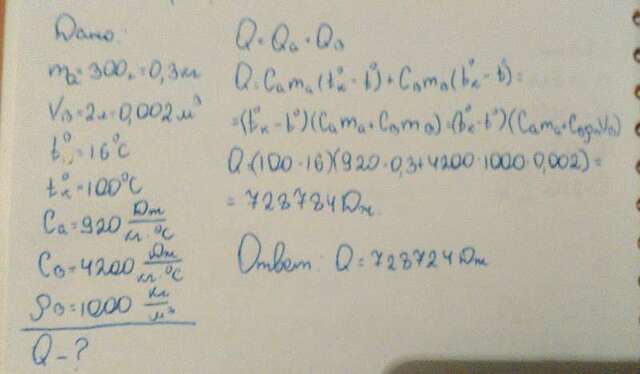 Дано:
mа = 300г = 0,3кг
Vв = 2л = 0,002м³
t° = 16°C
tк° = 100°C
Cа = 920 Дж/кг·°C
Cв = 4200 Дж/кг·°C
ρв = 1000 кг/м³
Q - ?
Q = Qа + Qв
Q = Cаmа(tк° - t°) + Cвmв(tк° - t°) =
= (tк° - t°)(Cаmа + Cвmв) = (tк° - t°)(Cаmа + CвρвVв)
Q = (100 - 16)(920·0,3 + 4200·1000·0,002) =
= 728784 Дж.
Ответ: Q = 728724 Дж